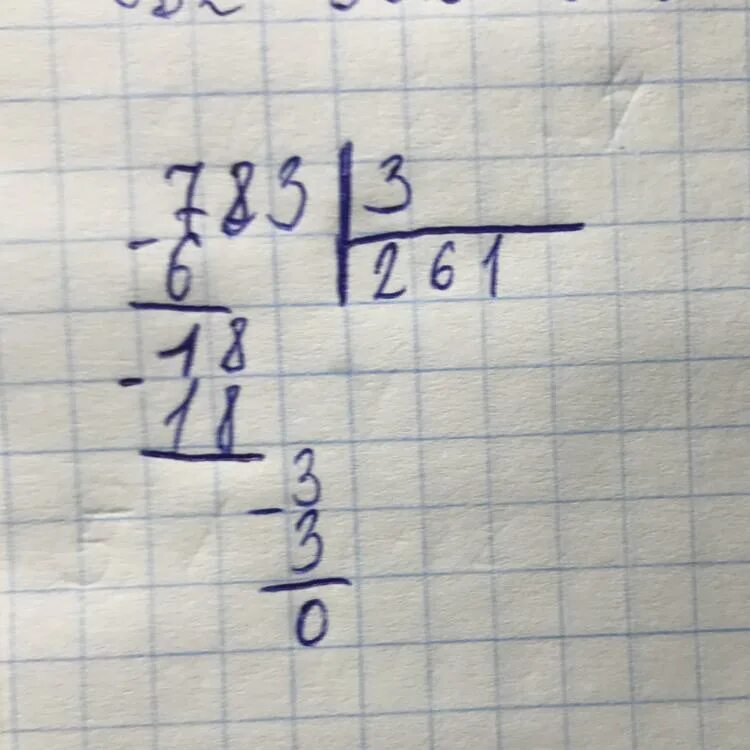 783 | 3
- 6 | 261
- 18
18
- 3
3
0